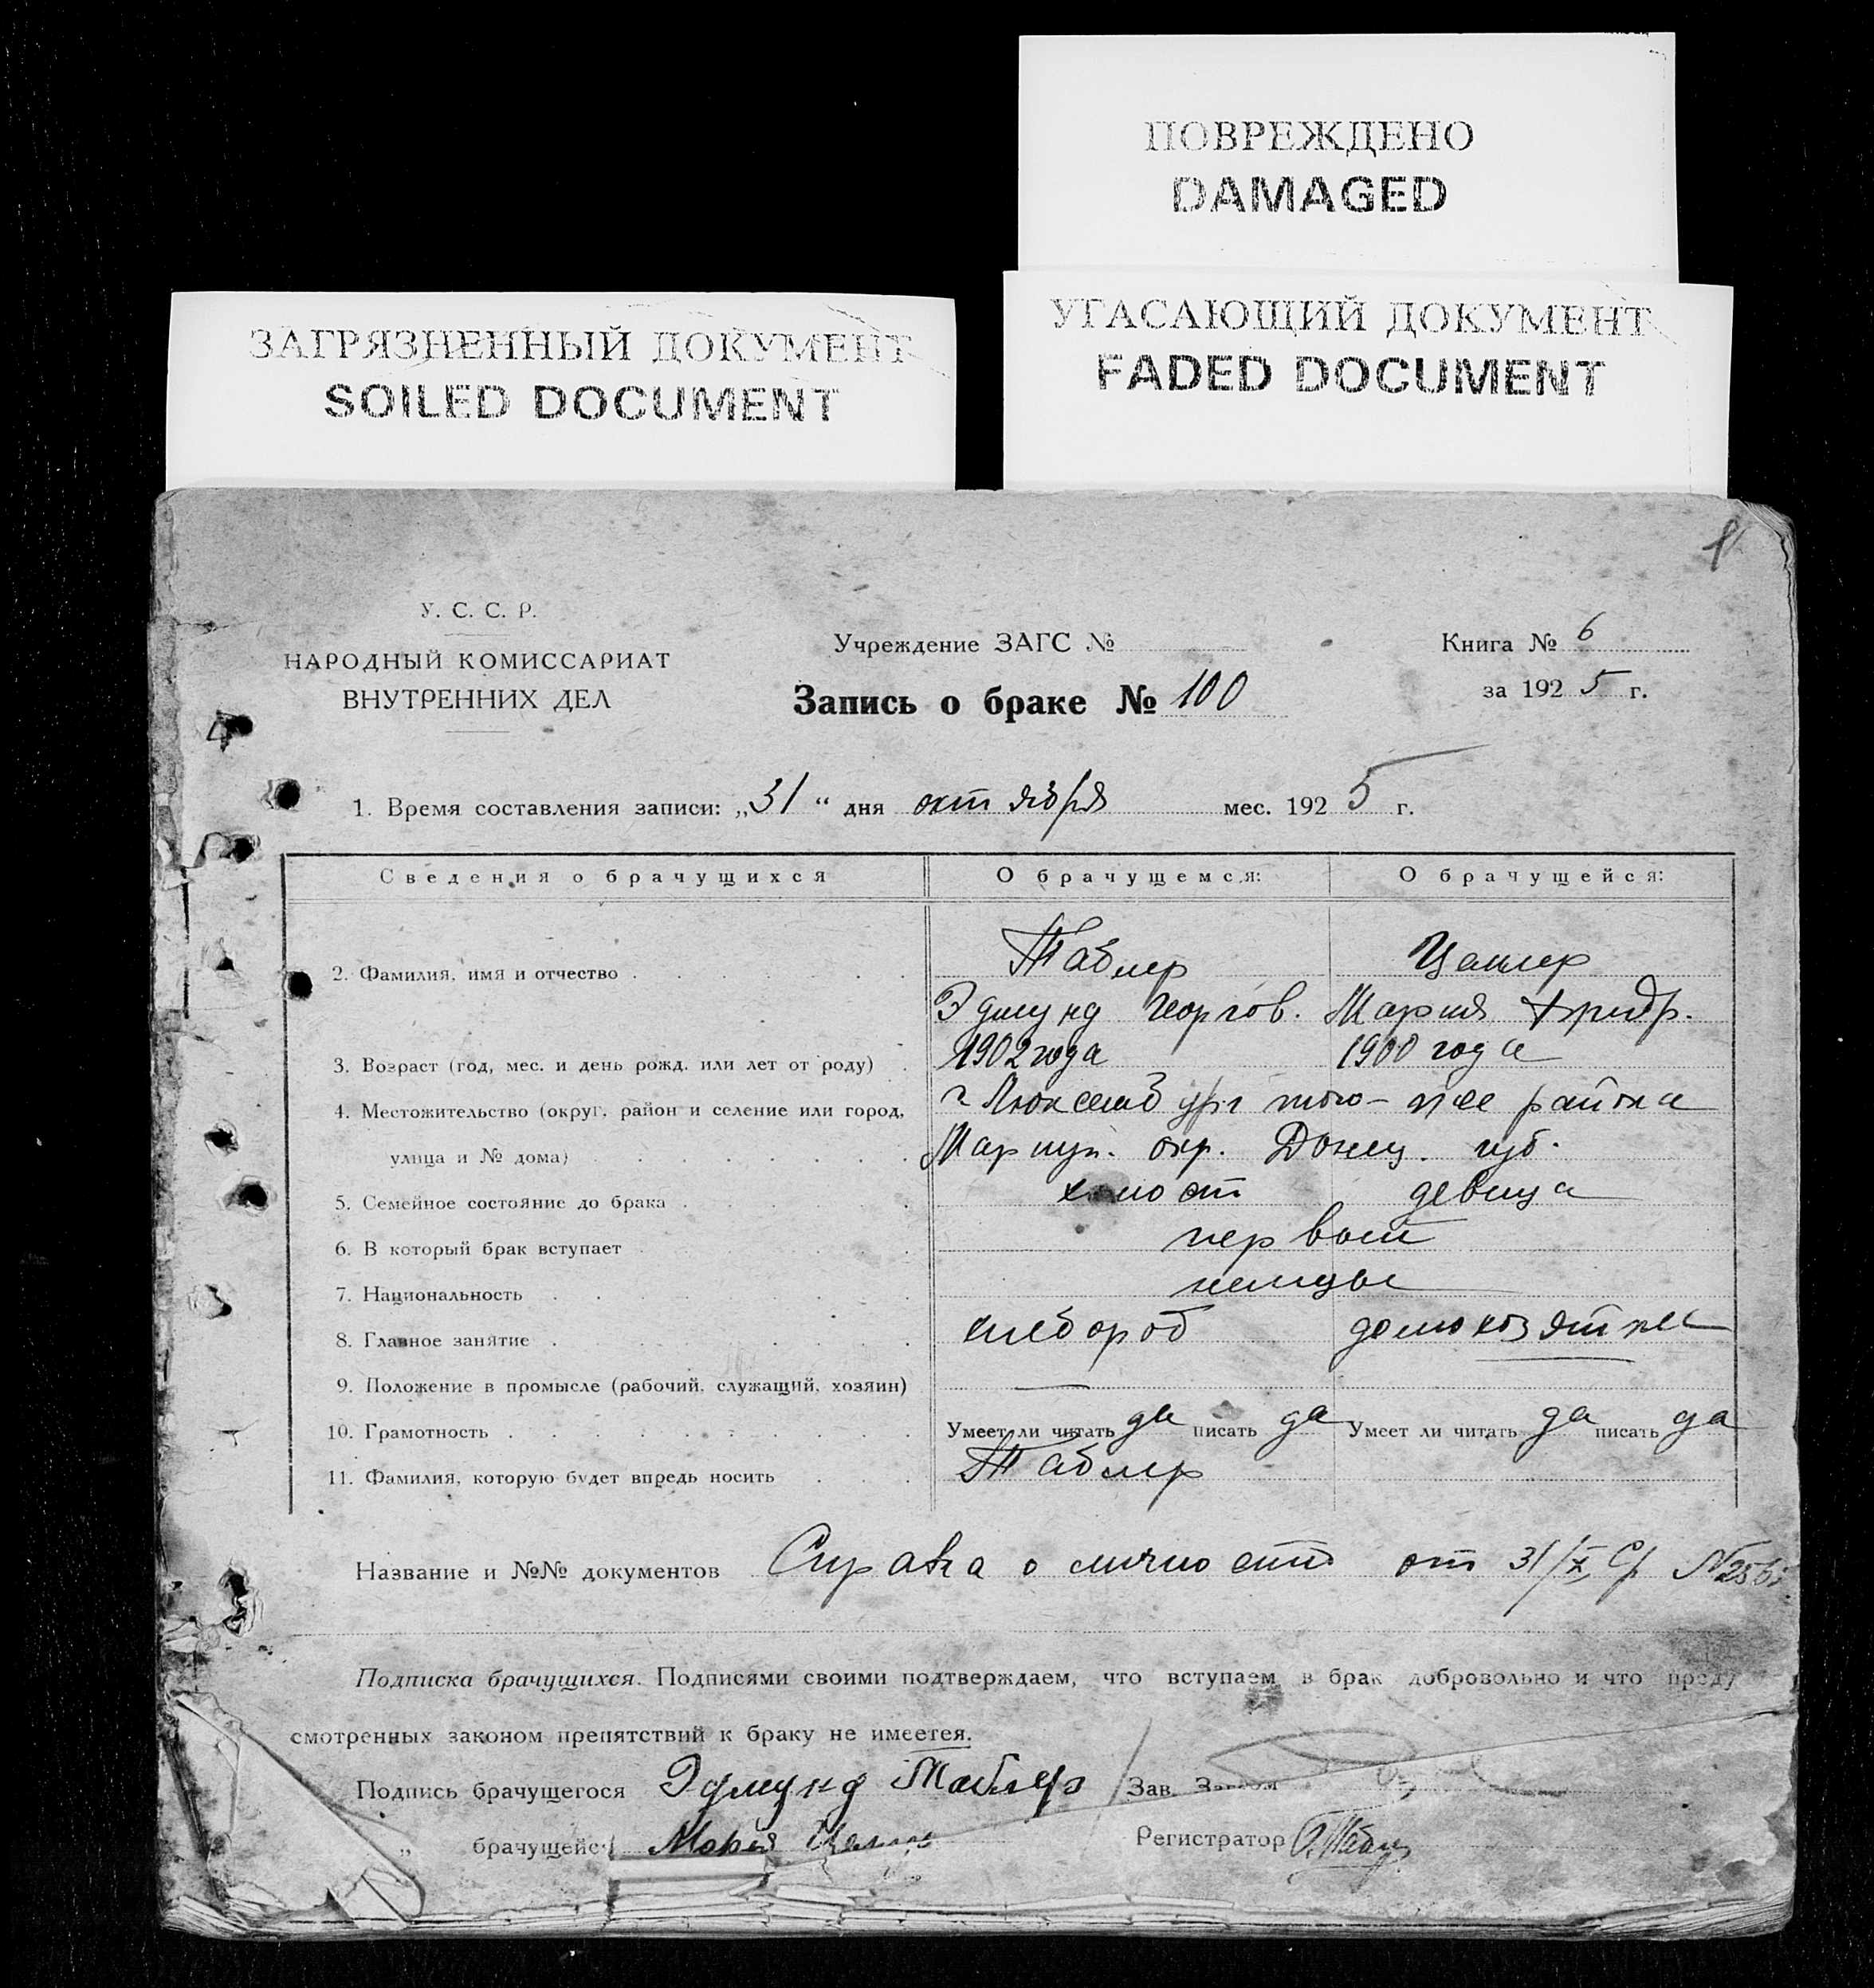 ПОВРЕЖДЕНО
DAMAGED
ЗАГРЯЗНЕННЫЙ ДОКУМЕНТ
SOILED DOCUMENT
УГАСАЮЩИЙ ДОКУМЕНТ
FADED DOCUMENT
У. С. С. Р.
НАРОДНЫЙ КОМИССАРИАТ
ВНУТРЕННИХ ДЕЛ
Учреждение ЗАГС №
Запись о браке № 100
Книга № 6
за 1925 г.
1. Время составления записи: „31“ дня октября мес. 1925 г.
Сведения о брачущихся О брачущемся: О брачущейся:
2. Фамилия, имя и отчество Таблер Цаллер
Эдмунд Георгов. Мария Фридр.
3. Возраст (год, мес. и день рожд. или лет от роду) 1902 года 1900 года
4. Местожительство (округ, район и селение или город, г Люксембург того-же района
улица и № дома) Мариуп. окр. Донец. губ.
5. Семейное состояние до брака холост девица
6. В который брак вступает первый
7. Национальность немцы
8. Главное занятие хлебороб домохозяйка
9. Положение в промысле (рабочий, служащий, хозяин) —
10. Грамотность Умеет ли читать да писать да Умеет ли читать да писать да
11. Фамилия, которую будет впредь носить Таблер
Название и №№ документов Справка о личности от 31/X
Подписка брачущихся. Подписями своими подтверждаем, что вступаем в брак добровольно и что преду
смотренных законом препятствий к браку не имеется.
Подпись брачущегося Эдмунд Таблер Зав. Загсом
„ брачущейс Мария Регистратор